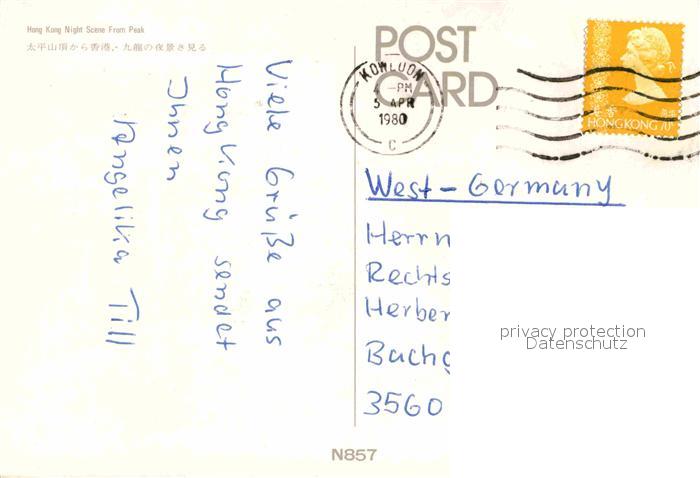 Hong Kong Night Scene From Peak
太平山頂から香港,・九龍の夜景さ見る
POST
CARD
KOWLOON
4 -PM
5 APR
1980
C
香港
HONG KONG 70¢
Viele Grüße aus
Hong Kong sendet
Ihnen
Angelika Till
West-Germany
Herrn
Rechts
Herber
Bach
3560
privacy protection
Datenschutz
N857